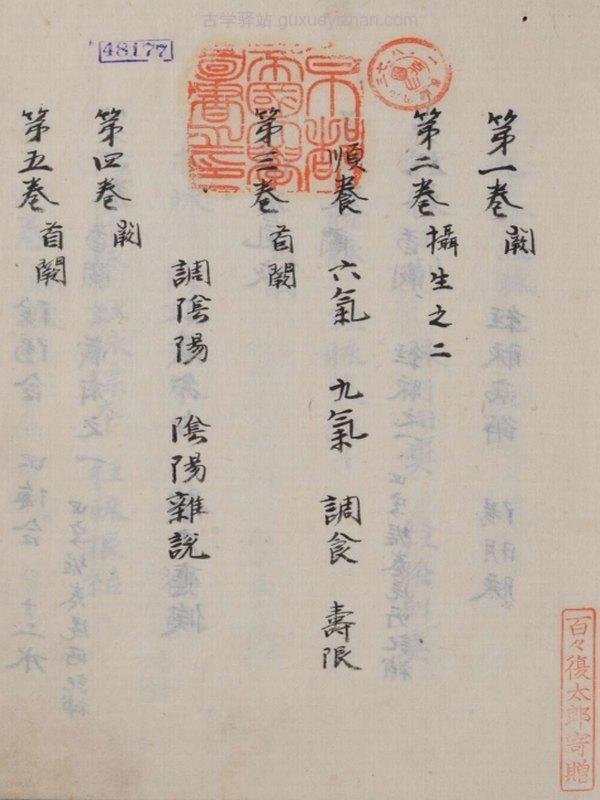 古学驿站 guxueyizhan.com
48177
第一卷 闕
第二卷 攝生之二
順養 六氣 九氣 調食 壽限
第三卷 首闕
調陰陽 陰陽雜説
第四卷 闕
第五卷 首闕
百々復太郎寄贈